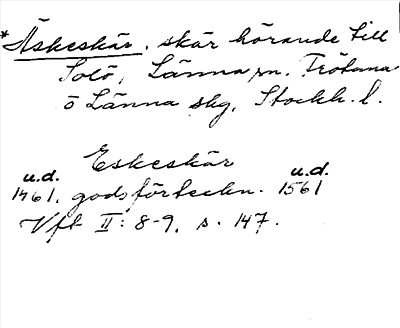 *Äskeskär, skär hörande till
Solö, Länna sn. Frötuna
o Länna skg, Stockh. l.
Eskeskär
u.d. u.d.
1461, godsförteckn. 1561
Vft II: 8-9, s. 147.